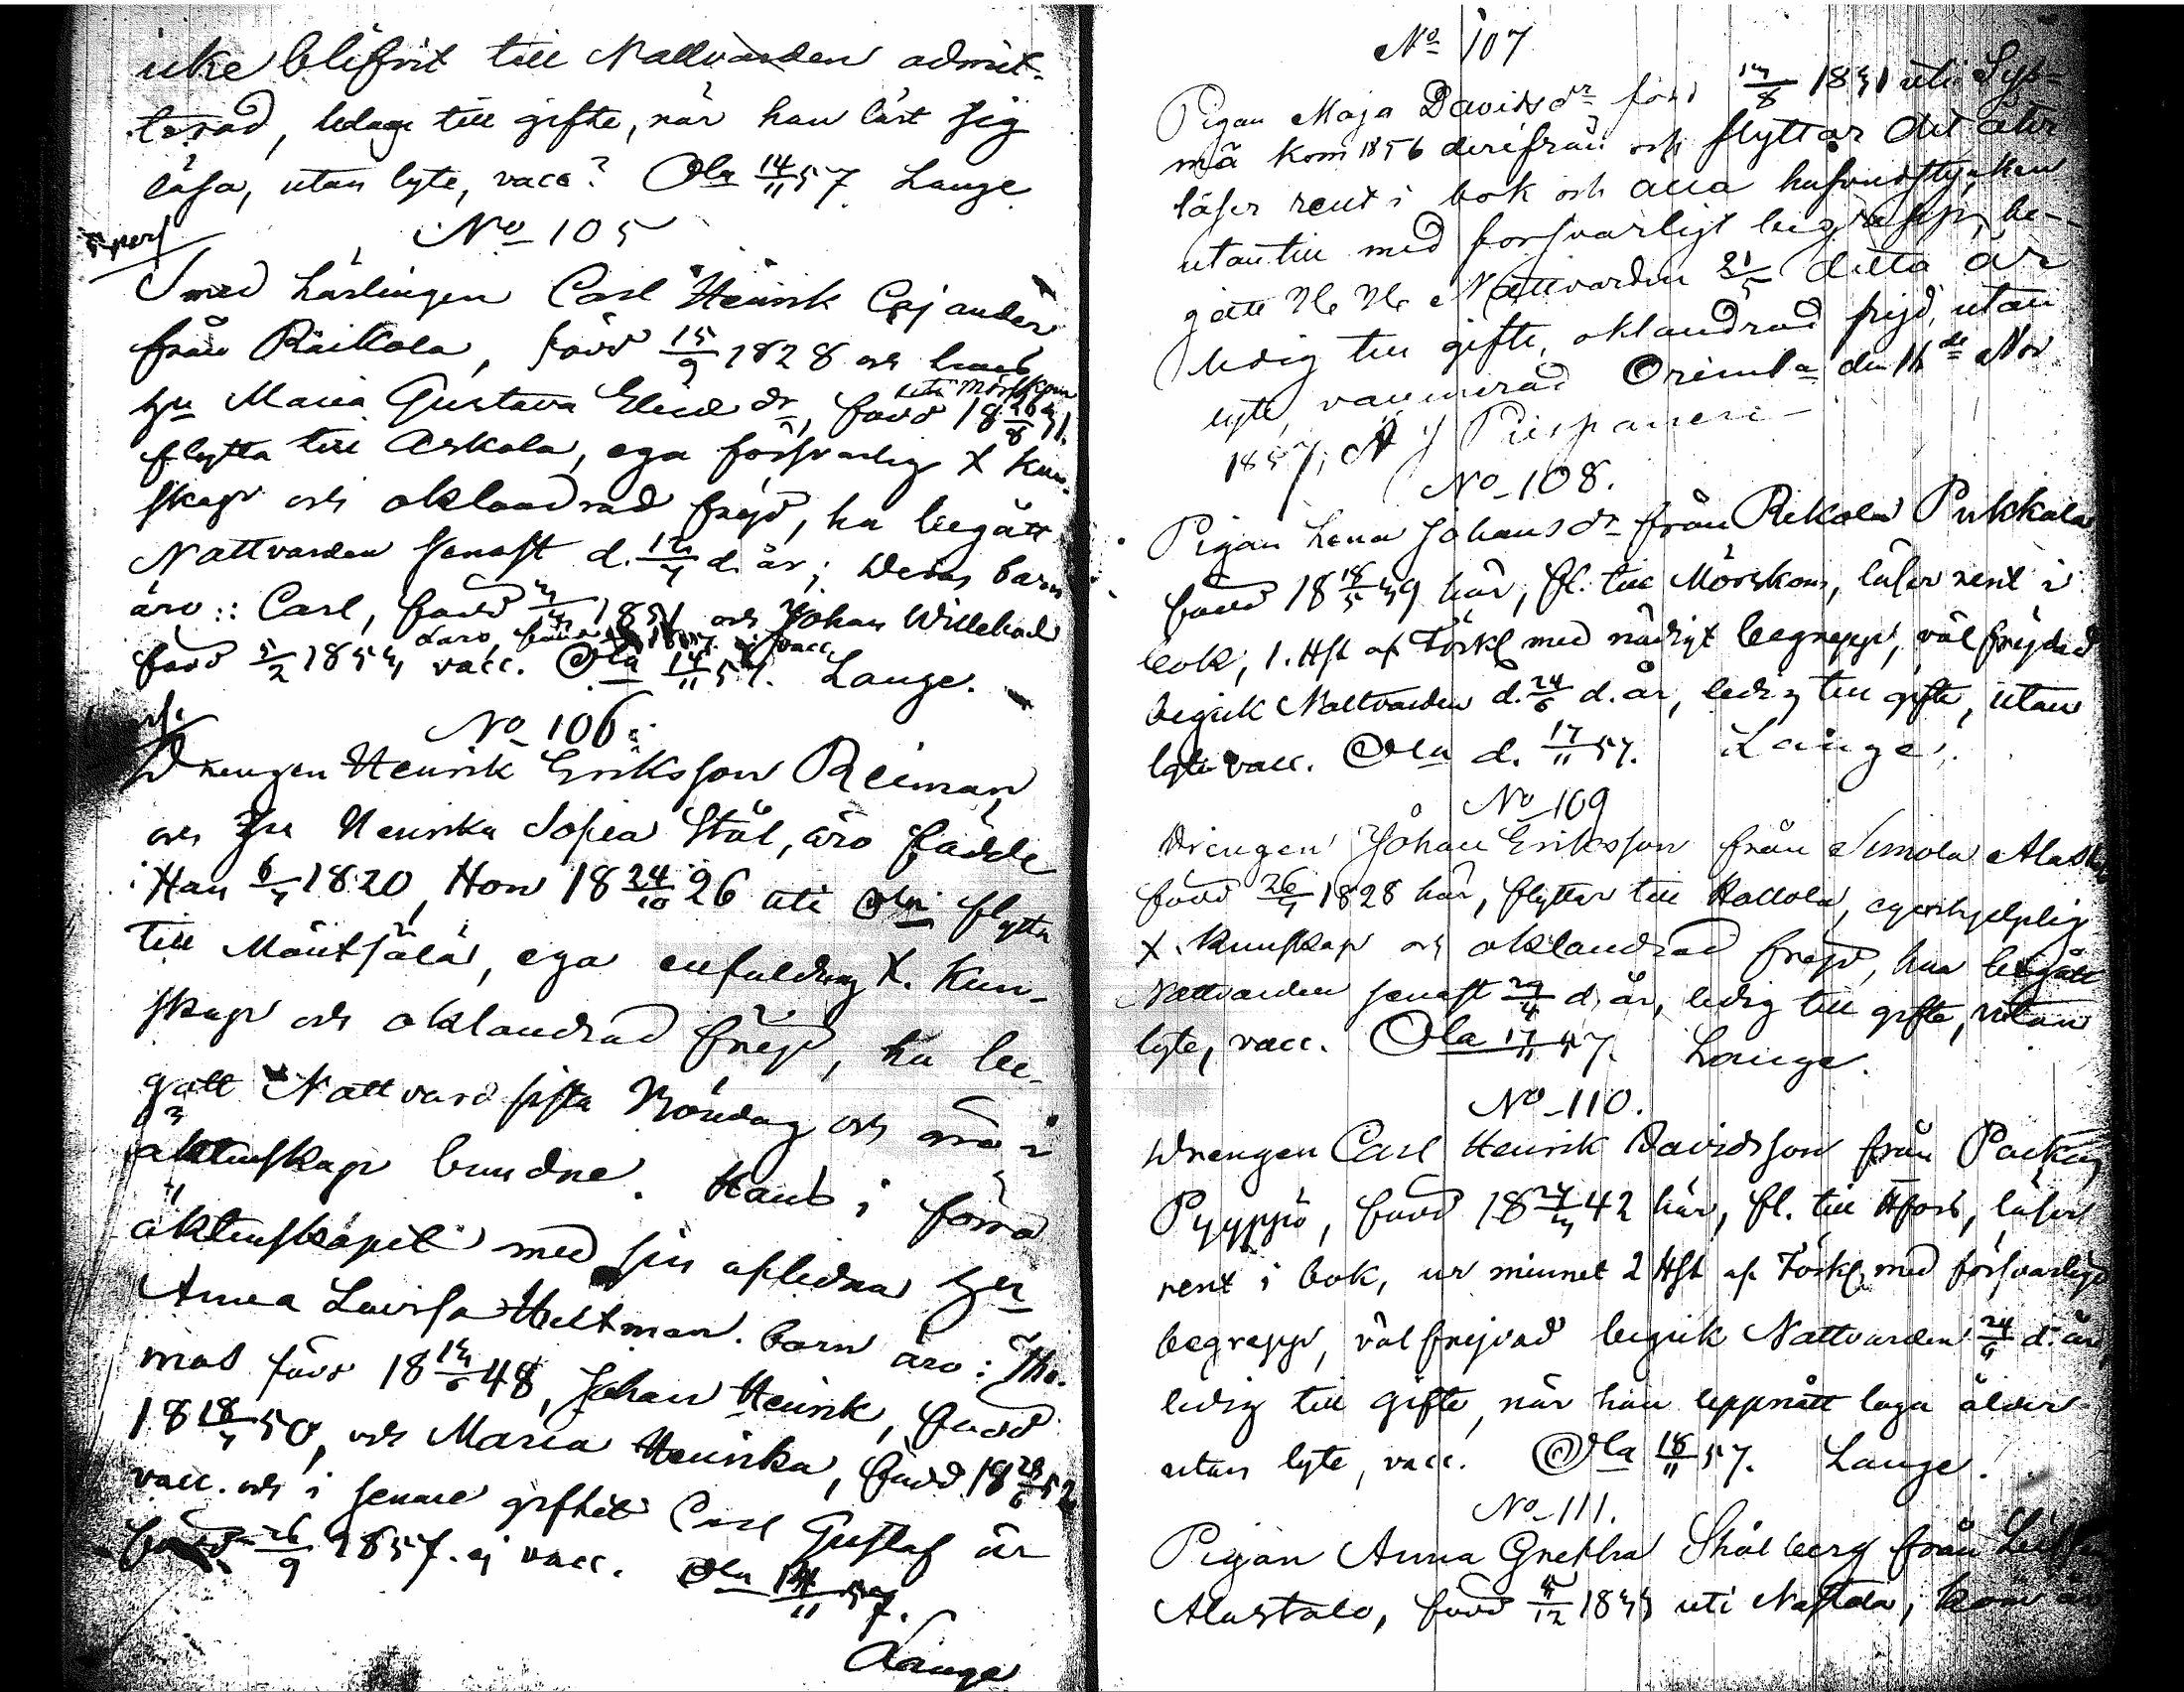 icke blifvit till Nattvarden admit-
terad, ledige till gifte, när han lärt sig
läsa, utan lyte, vacc? Ola 14/11 57. Lange
No 105
Smed Lärlingen Carl Henrik Cajander
från Räikola, född 15/9 1828 och hans
hu Maria Gustava dr, född 18 26/8 31.
uti Mörskom
flytta till Askola, ega försvarlig X kun-
skap och oklandrad frejd, ha begått
Nattvarden senast d. d. år; Deras barn
äro: Carl, född 1851 och Johan Willehad
född 5/2 1854 vacc. Ola 14/11 57. Lange.
No 106.
Drengen Henrik Eriksson Reiman
och Hu Henrika Sofia Stål, äro födde
Han 6/7 1820, Hon 18 24/10 26 uti Ola flytta
till Mäntsälä, ega enfaldig X. Kun-
skap och oklandrad frejd, ha be-
gått Nattvard sista Söndag och äro i
äktenskap bundne. Hans i förra
äktenskapet med sin aflidna Hu
Anna Lovisa Heltman. barn äro: Tho-
mas född 18 48, Johan Henrik, född
18 18/7 50, och Maria Henrika, född 18 28/6 52
vacc. och i senare giftet Carl Gustaf är
född 26/9 1857. ej vacc. Ola 14/11 57.
Lange
No 107
Pigan Maja Davidsdr född 1841 uti Sys-
mä kom 1856 derifrån och flyttar dit åter
läser rent i bok och alla hufvudstycken
utantill med försvarligt begrepp, be-
gått H. H. Nattvarden 21/5 detta år
ledig till gifte, oklandrad frejd, utan
lyte, vaccinerad Orimla den 16de Nov
1857, A J Piispanen
No 108.
Pigan Lena Johansdr från Rekola Pukkala
född 18 18/5 39 här, fl. till Mörskom, läser rent i
bok, 1. Hst af Förkl med nödigt begrepp, välfrejdad
begick Nattvarden d. 24/6 d. år, ledig till gifte, utan
lyte vacc. Ola d. 17/11 57. Lange.
No 109
Drengen Johan Eriksson från Simola
född 26/7 1828 här, flyttar till Hollola, eger hjelplig
X. Kunskap och oklandrad frejd, har begått
Nattvarden senast 29/4 d. år, ledig till gifte, utan
lyte, vacc. Ola 17/11 57. Lange.
No 110.
Drengen Carl Henrik Davidsson från
född 18 42 här, fl. till Hfors, läser
rent i bok, ur minnet 2 Hst af Förkl, med försvarligt
begrepp, välfrejdad begick Nattvarden 24/6 d. år,
ledig till gifte, när han uppnått laga ålder
utan lyte, vacc. Ola 18/11 57. Lange.
No 111.
Pigan Anna Gretha Stålberg från
Alastalo, född uti Nastola, kom